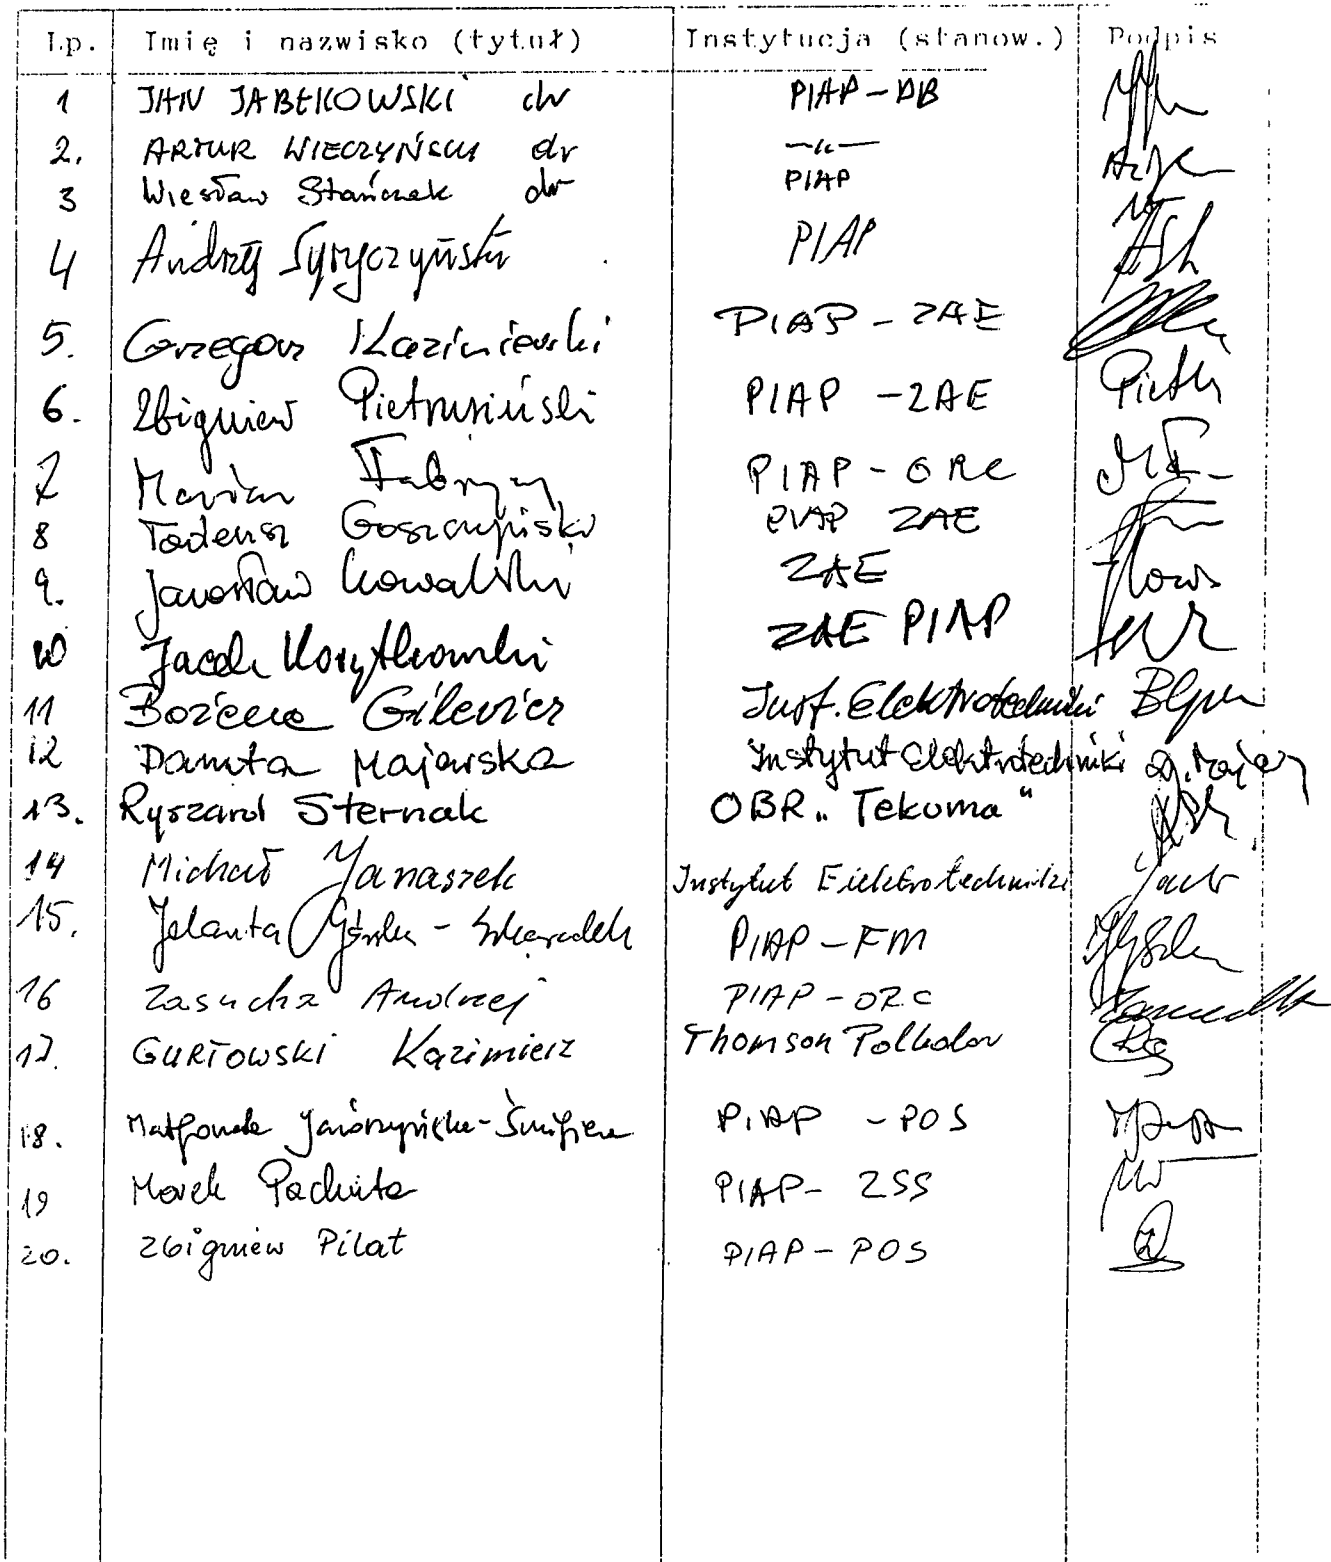 Lp. Imię i nazwisko (tytuł) Instytucja (stanow.) Podpis
1 JAN JABŁKOWSKI dr PIAP-DB
2. ARTUR WIECZYŃSKI dr —„—
3 Wiesław Stańczak dr PIAP
4 Andrzej Syryczyński PIAP
5. Grzegorz Kazimierski PIAP - ZAE
6. Zbigniew Pietrusiński PIAP - ZAE
7 Marian Fabrycy PIAP - ORC
8 Tadeusz Goszczyński PIAP ZAE
9. Jarosław Kowalski ZAE
10 Jacek Korytkowski ZAE PIAP
11 Bożena Gilewicz Inst. Elektrotechniki
12 Danuta Majewska Instytut Elektrotechniki
13. Ryszard Sternak OBR „Tekoma"
14 Michał Janaszek Instytut Elektrotechniki
15. Jolanta Górska - PIAP - FM
16 Zasucha Andrzej PIAP - ORC
17. GURTOWSKI Kazimierz Thomson Polkolor
18. Małgorzata PIAP - POS
19 Marek Pachuta PIAP - ZSS
20. Zbigniew Pilat PIAP - POS